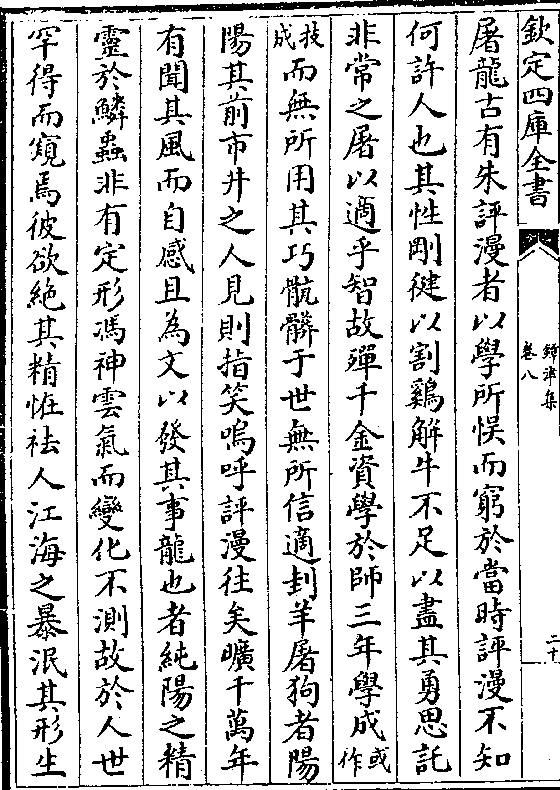 欽定四庫全書
鐔津集
卷八
二十
屠龍古有朱評漫者以學所悞而窮於當時評漫不知
何許人也其性剛健以割鷄解牛不足以盡其勇思託
非常之屠以適乎智故殫千金資學於師三年學成或作
技成而無所用其巧骯髒于世無所信適刲羊屠狗者陽
陽其前市井之人見則指笑嗚呼評漫往矣曠千萬年
有聞其風而自感且為文以發其事龍也者純陽之精
靈於鱗蟲非有定形馮神雲氣而變化不測故於人世
罕得而窺焉彼欲絶其精恠祛人江海之暴泯其形生